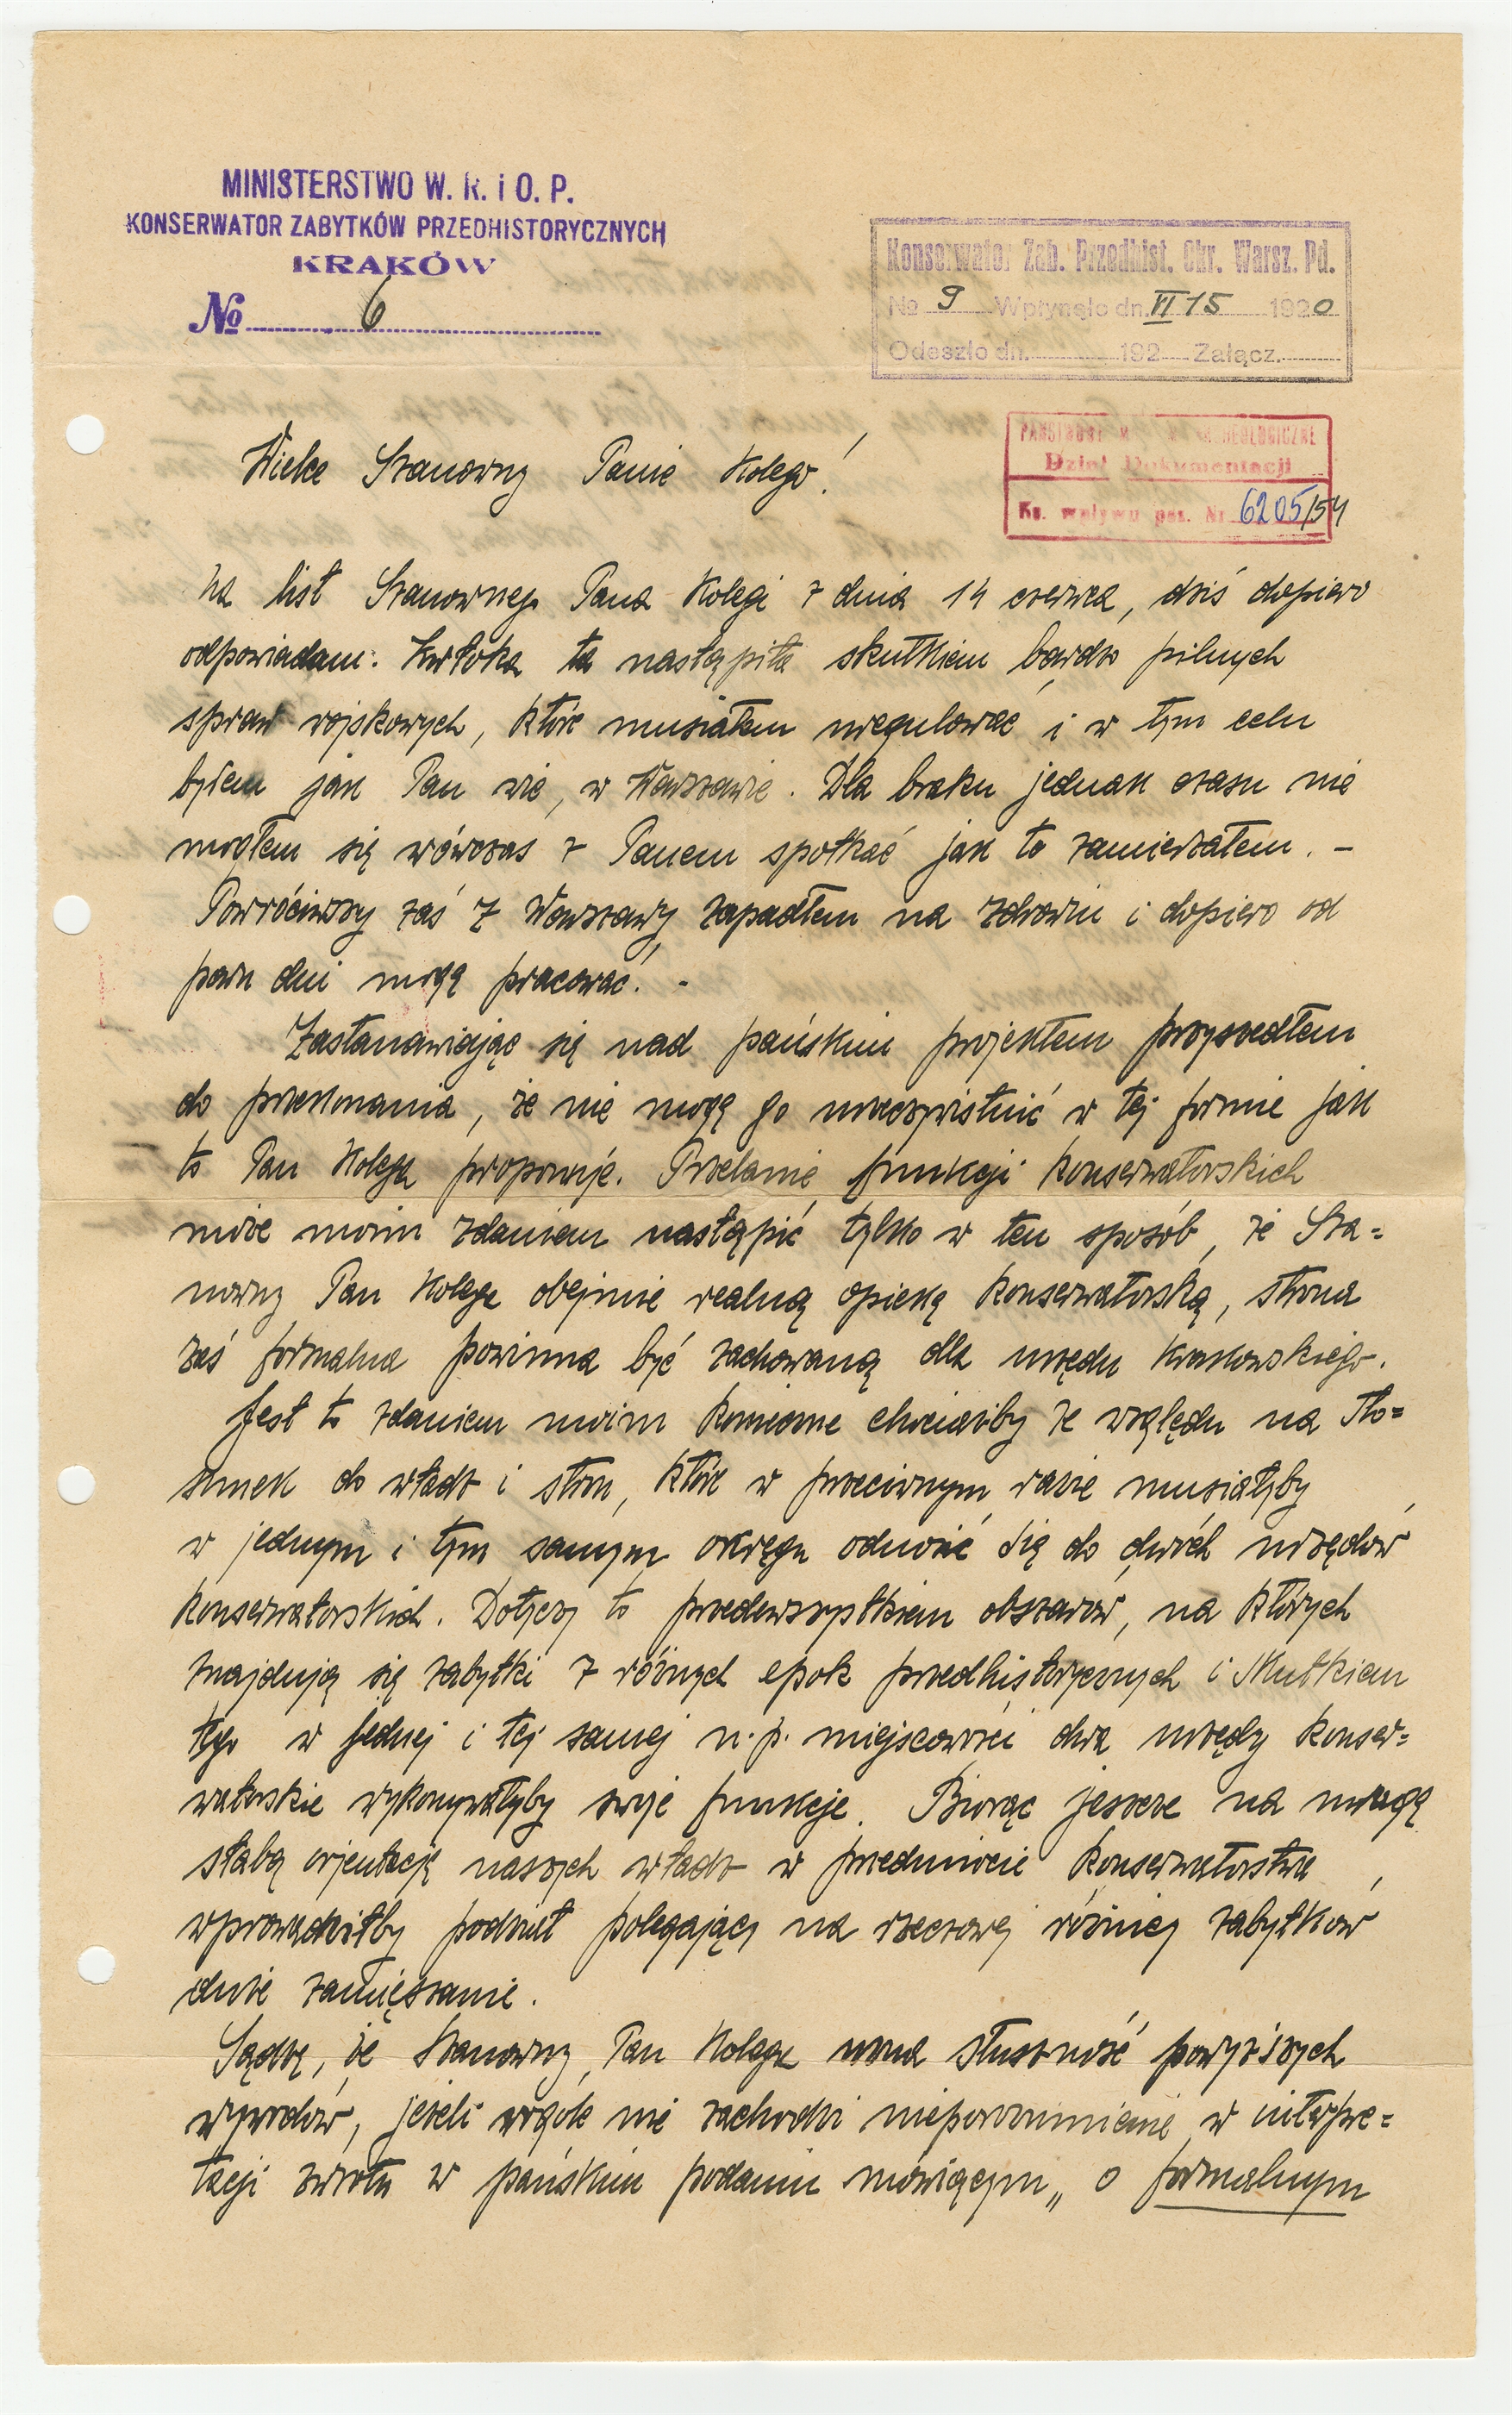 MINISTERSTWO W. R. i O. P.
KONSERWATOR ZABYTKÓW PRZEDHISTORYCZNYCH
KRAKÓW
№ 6
Konserwator Zab. Przedhist. Okr. Warsz. Pd.
№ 9 Wpłynęło dn. VI 15 1920
Odeszło dn. 192 Załącz.
PAŃSTWOWE M ARCHEOLOGICZNE
Dział Dokumentacji
Ks. wpływu poz. Nr 6205/54
Wielce Szanowny Panie Kolego!
Na list Szanownego Pana Kolegi z dnia 14 czerwca, dziś dopiero
odpowiadam. Zwłoka ta nastąpiła skutkiem bardzo pilnych
spraw wojskowych, które musiałem uregulować i w tym celu
byłem jak Pan wie, w Warszawie. Dla braku jednak czasu nie
mogłem się wówczas z Panem spotkać jak to zamierzałem. –
Powróciwszy zaś z Warszawy zapadłem na zdrowiu i dopiero od
paru dni mogę pracować. -
Zastanawiając się nad pańskim projektem przyszedłem
do przekonania, że nie mogę go urzeczywistnić w tej formie jak
to Pan Kolega proponuje. Przelanie funkcji konserwatorskich
może moim zdaniem nastąpić tylko w ten sposób, że Sza=
nowny Pan Kolega obejmie realną opiekę konserwatorską, strona
zaś formalna powinna być zachowaną dla urzędu krakowskiego.
Jest to zdaniem moim konieczne chociażby ze względu na sto=
sunek do władz i stron, które w przeciwnym razie musiałyby
w jednym i tym samym okręgu odnosić się do dwóch urzędów
konserwatorskich. Dotyczy to przedewszystkiem obszarów, na których
znajdują się zabytki z różnych epok przedhistorycznych i skutkiem
tego w jednej i tej samej n.p. miejscowości dwa urzędy konser=
watorskie wykonywałyby swoje funkcje. Biorąc jeszcze na uwagę
słabą orjentację naszych władz w przedmiocie konserwatorstwa,
wprowadziłby podział polegający na rzeczowej różnicy zabytków
duże zamięszanie.
Sądzę, że Szanowny Pan Kolega uzna słuszność powyższych
wywodów, jeżeli wogóle nie zachodzi nieporozumienie w interpre=
tacji zwrotu w pańskim podaniu mówiącym „ o formalnym